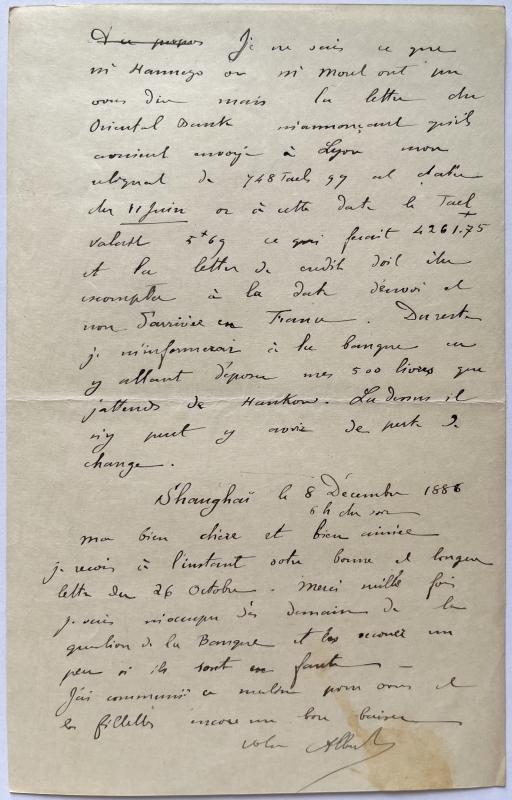 Je ne sais ce que
ni Hannego ou ni Morel ont pu
vous dire mais la lettre du
Oriental Bank m'annonçant qu'ils
avaient envoyé à Lyon mon
reliquat de 748 Taels 97 est datée
du 11 Juin or à cette date le Tael
valait 5+69 ce qui ferait 4261.75
et la lettre de credit doit être
escomptée à la date d'envoi et
non d'arrivée en France. Du reste
je m'informerai à la banque en
y allant déposer mes 500 livres que
j'attends de Hankow. La dessus il
n'y peut y avoir de perte de
change.
Shanghaï le 8 Décembre 1886
6 h du soir
ma bien chère et bien aimée
je reçois à l'instant votre bonne et longue
lettre du 26 Octobre. Merci mille fois
je vais m'occuper dès demain de la
question de la Banque et les secouer un
peu si ils sont en faute —
J'ai communié ce matin pour vous et
les fillettes encore un bon baiser
votre Albert